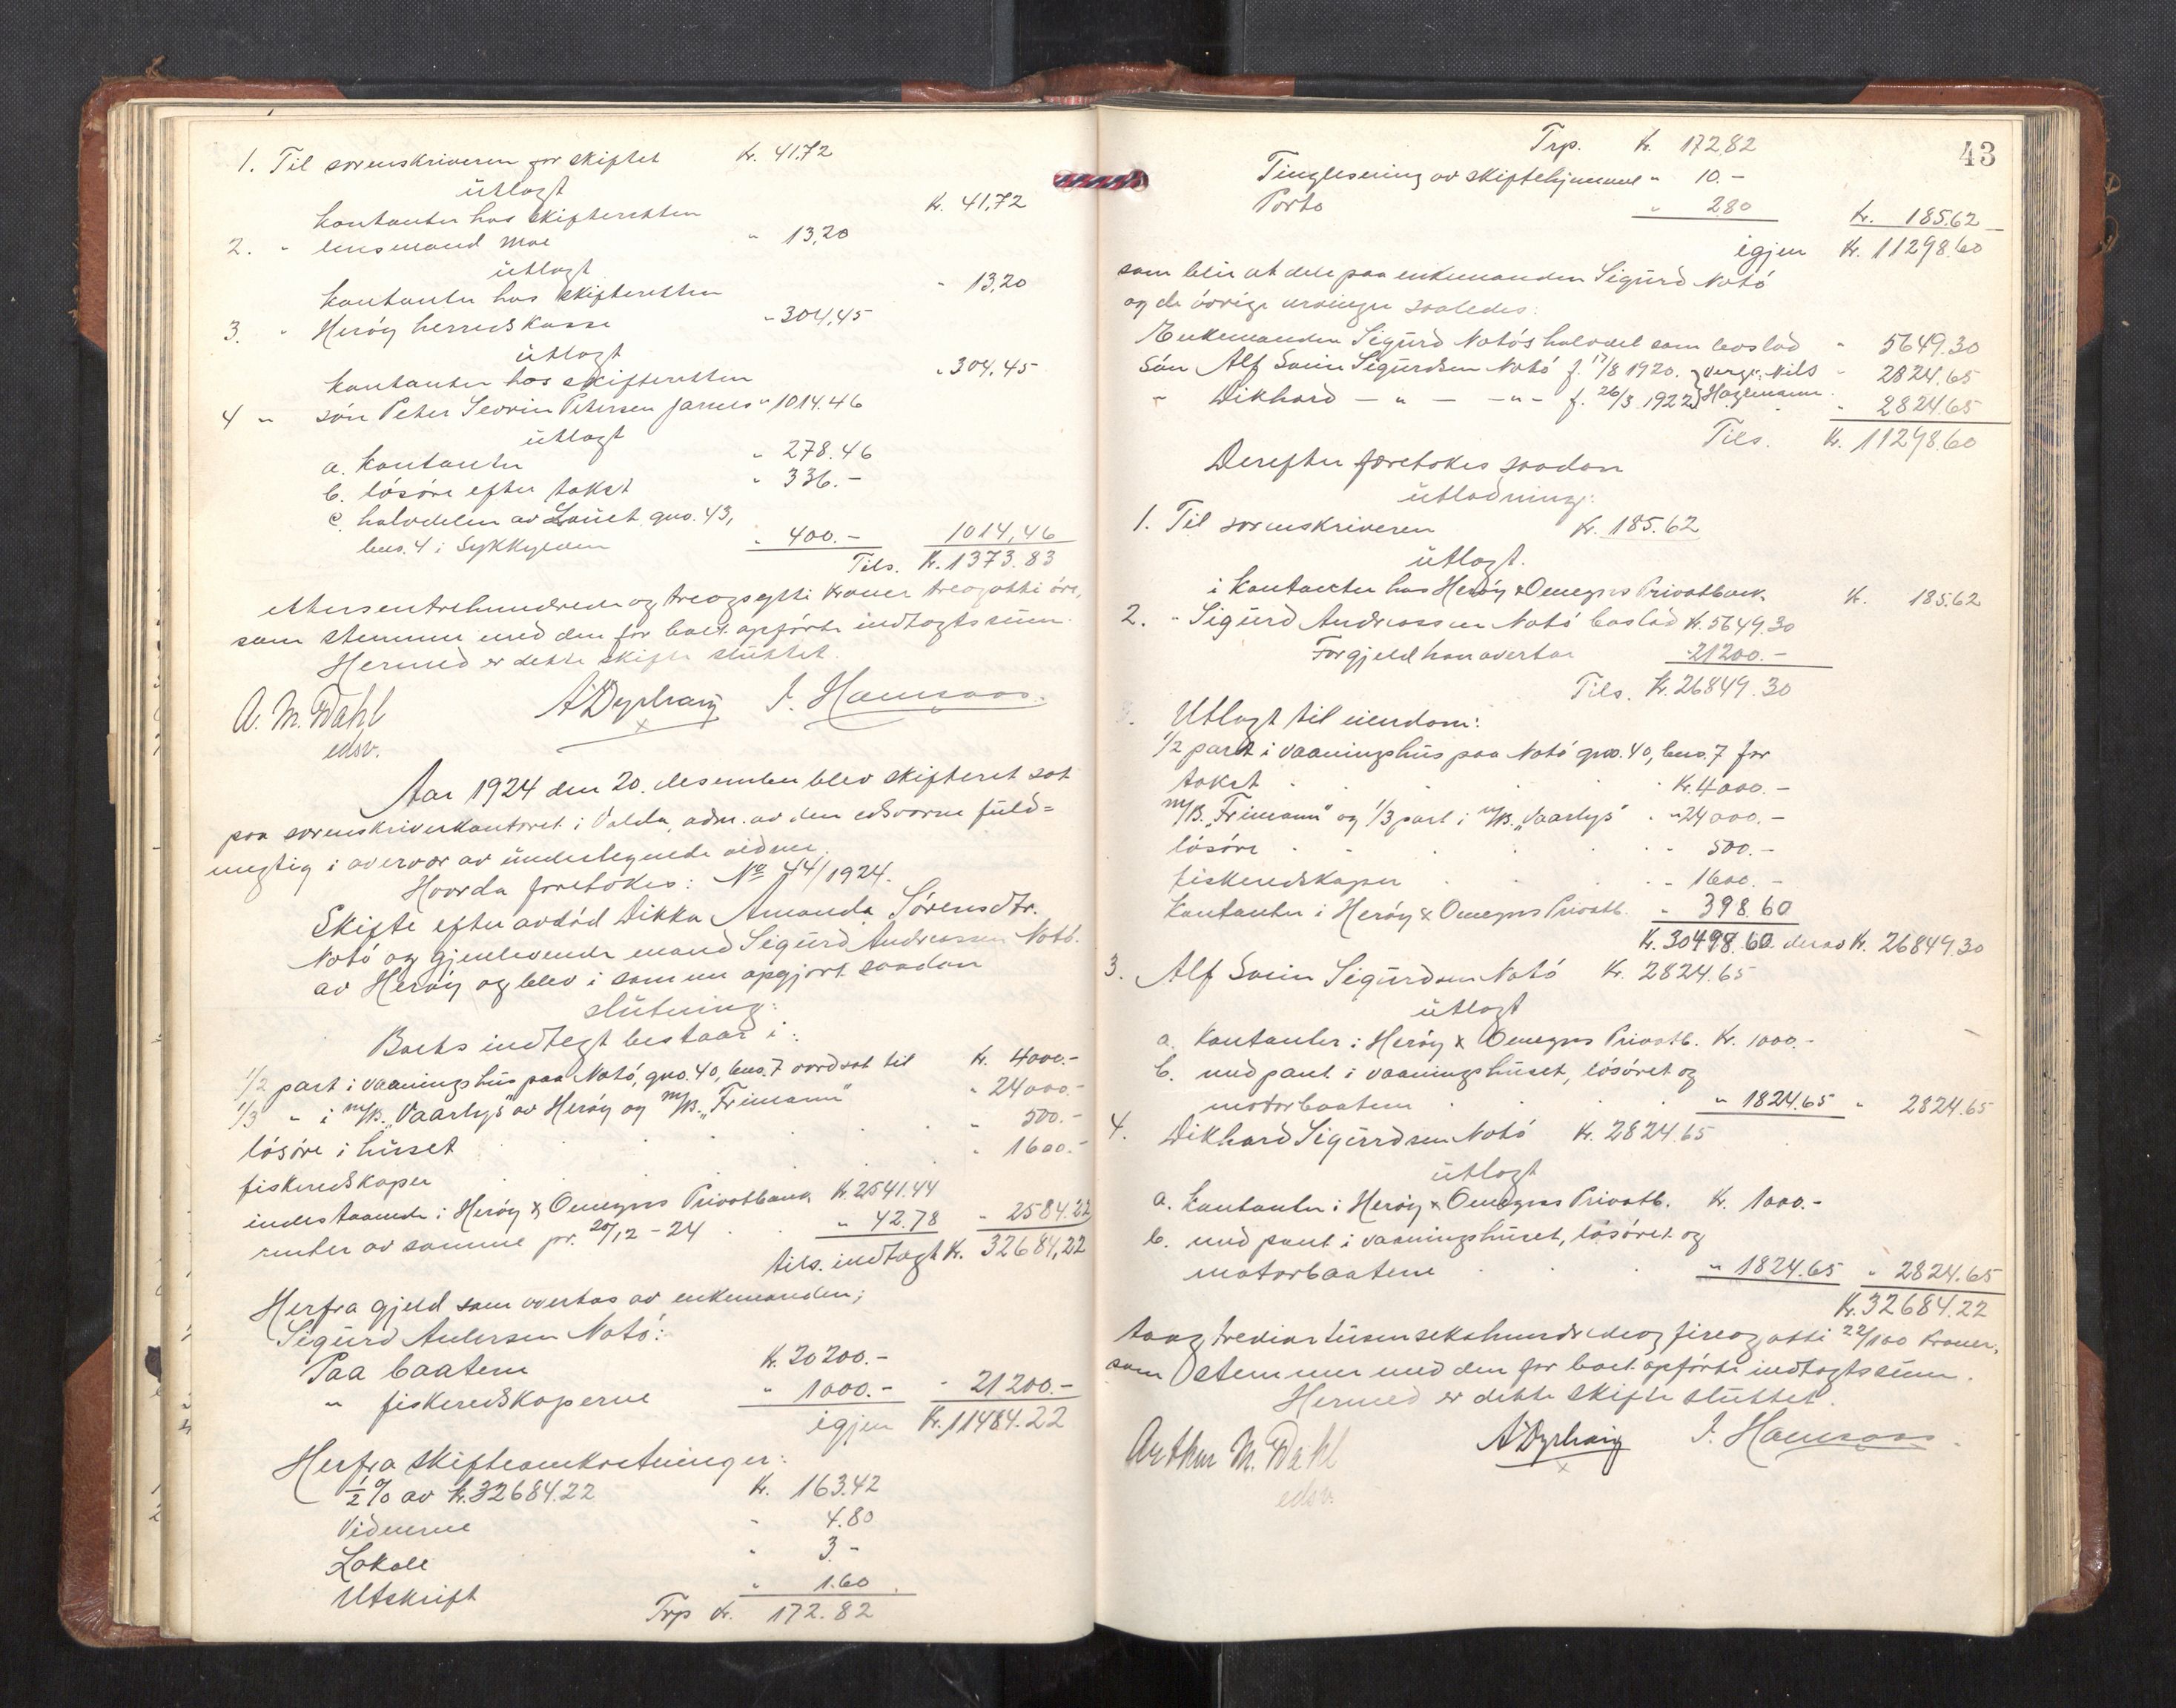 1. Til sorenskriveren for skiftet Kr. 41,72
utlagt
kontanter hos skifteretten Kr. 41,72
2. " lensmand Moe " 13,20
utlagt
kontanter hos skifteretten " 13,20
3. " Herøy herredskasse " 304,45
utlagt
kontanter hos skifteretten " 304,45
4 " søn Peter Severin Petersen Jarnes " 1014.46
utlagt
a. kontanter " 278.46
b. løsøre efter takst " 336.-
c. halvdelen av Lauet gno. 43,
bno. 4 i Sykkylven " 400.- 1014,46
Tils. Kr. 1373.83
ettusentrehundrede og treogsytti kroner treogotti øre,
som stemmer med den for boet opførte indtægtssum.
Hermed er dette skifte sluttet.
A. M. Dahl A Dyrhaug J. Hamraas.
edsv. x
Aar 1924 den 20. desember blev skifteret sat
paa sorenskriverkontoret i Volda, adm. av den edsvorne fuld=
mægtig i overvær av undertegnede vidner.
Hvorda foretokes: No 44/1924.
Skifte efter avdød Dikka Amanda Sørensdtr.
Notø og gjenlevende mand Sigurd Andreassen Notø
av Herøy og blev i samme opgjort saadan
slutning:
Boets indtægt bestaar i:
1/2 part i vaaningshus paa Notø, gno. 40, bno. 7 værdsat til Kr. 4000.-
1/3 " i m/B. "Vaarlys" av Herøy og m/B. "Frimann" " 24000.-
løsøre i huset " 500.-
fiskeredskaper " 1600.-
indestaaende i Herøy & Omegns Privatbank Kr. 2541.44
renter av samme pr. 20/12 - 24 " 42.78 " 2584.22
tils. indtægt Kr. 32684,22
Herfra gjeld som overtas av enkemanden;
Sigurd Andersen Notø:
Paa baaten Kr. 20200.-
" fiskeredskaperne " 1000.- " 21200.-
igjen Kr. 11484.22
Herfra skifteomkostninger:
1/2 % av Kr. 32684.22 Kr. 163.42
Vidnerne " 4.80
Lokale " 3.-
Utskrift " 1.60
Trp Kr. 172.82
43
Trp. Kr. 172.82
Tinglesning av skiftehjemmel " 10.-
Porto " 2.80 Kr. 185.62
igjen Kr. 11298.60
som blir at dele paa enkemanden Sigurd Notø
og de øvrige arvinger saaledes:
Enkemanden Sigurd Notøs halvdel som boslod " 5649.30
Søn Alf Sevin Sigurdsen Notø f. 17/8 1920. } Verge: Nils " 2824.65
" Dikhard - " - - " - f. 26/3 1922 } Hagemann. " 2824.65
Tils. Kr. 11298.60
Derefter foretokes saadan
utlodning:
1. Til sorenskriveren Kr. 185.62
utlagt.
i kontanter hos Herøy & Omegns Privatbank Kr. 185.62
2. " Sigurd Andreassen Notø boslod Kr. 5649.30
For gjeld han overtar " 21200.-
Tils. Kr. 26849.30
Utlagt til eiendom:
1/2 part i vaaningshus paa Notø gno. 40, bno. 7 for
takst Kr. 4000.-
m/B. "Frimann" og 1/3 part i m/B. "Vaarlys" " 24000.-
løsøre " 500.-
fiskeredskaper " 1600.-
Kontanter i Herøy & Omegns Privatb. " 398.60
Kr. 30498.60 derav Kr. 26849.30
3. Alf Sevin Sigurdsen Notø Kr. 2824.65
utlagt
a. kontanter i Herøy & Omegns Privatb. Kr. 1000.-
b. med pant i vaaningshuset, løsøret og
motorbaatene " 1824.65 " 2824.65
4. Dikhard Sigurdsen Notø Kr. 2824.65
utlagt
a. kontanter i Herøy & Omegns Privatb. Kr. 1000.-
b. med pant i vaaningshuset, løsøret og
motorbaatene " 1824.65 " 2824.65
Kr. 32684.22
toogtrediartusensekshundredeogfireogotti 22/100 kroner,
som stemmer med den for boet opførte indtægtssum.
Hermed er dette skifte sluttet.
Arthur M. Dahl A Dyrhaug J. Hamraas.
edsv. x